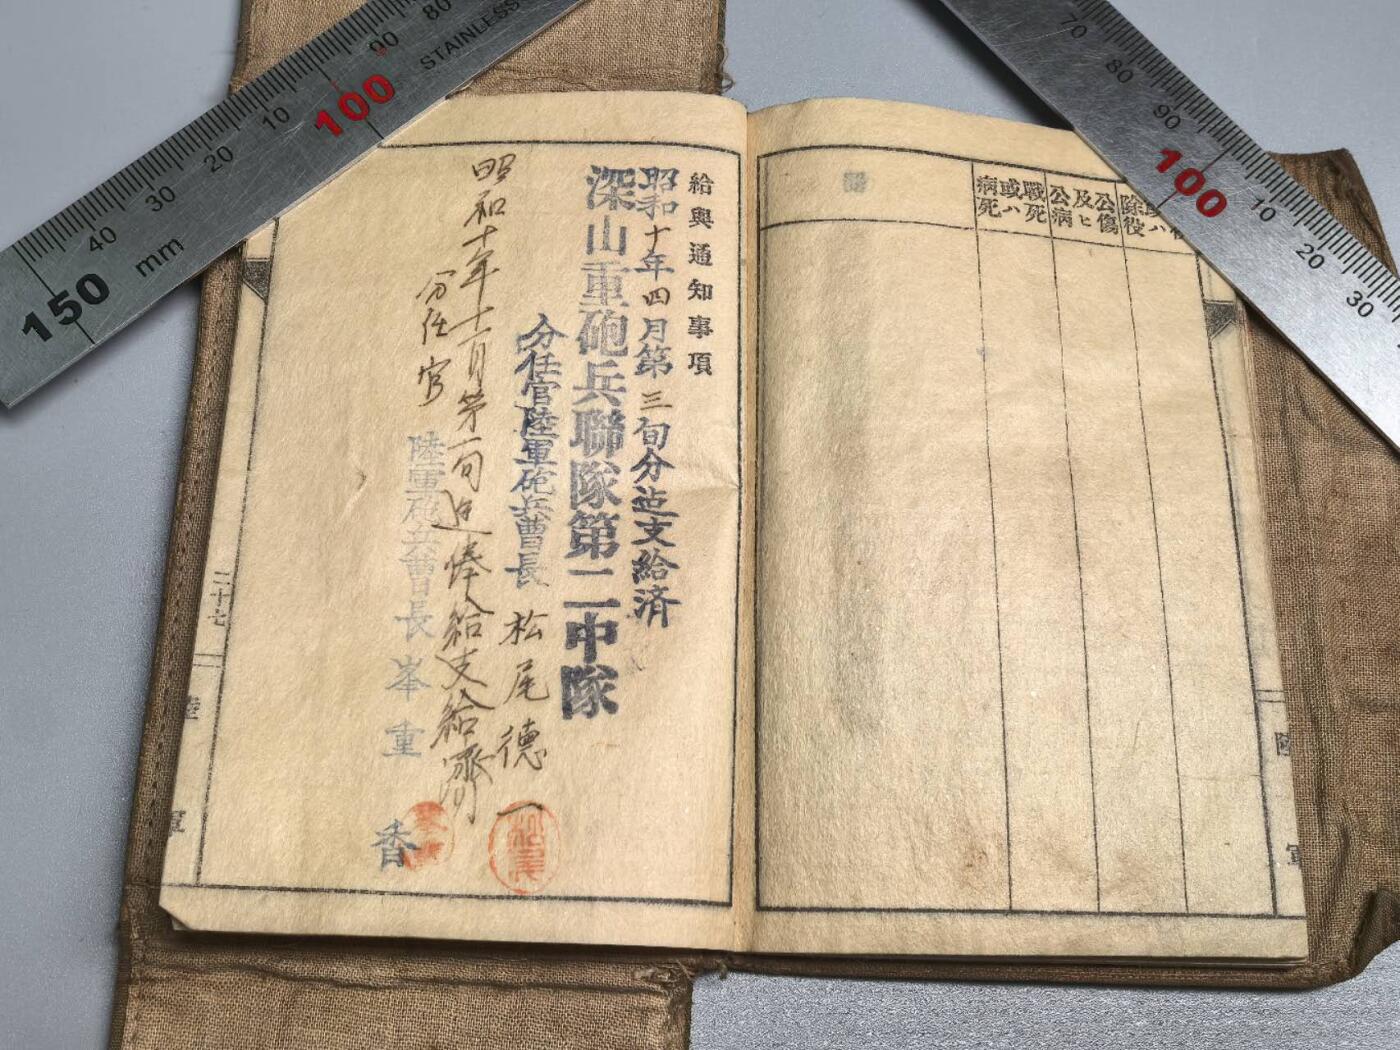 給與通知事項
昭和十年四月第三旬分迠支給済
深山重砲兵聯隊第二中隊
分任官陸軍砲兵曹長 松尾德一
昭和十年十一月第一旬迠俸給支給濟
分任官 陸軍砲兵曹長 峯重香
二十七
陸軍
除役
公傷
及ヒ
公病
戰死
或ハ
病死
陸軍
松尾
150
mm
40
30
20
10
100
90
80
STAINLESS
70
80
90
100
10
20
30